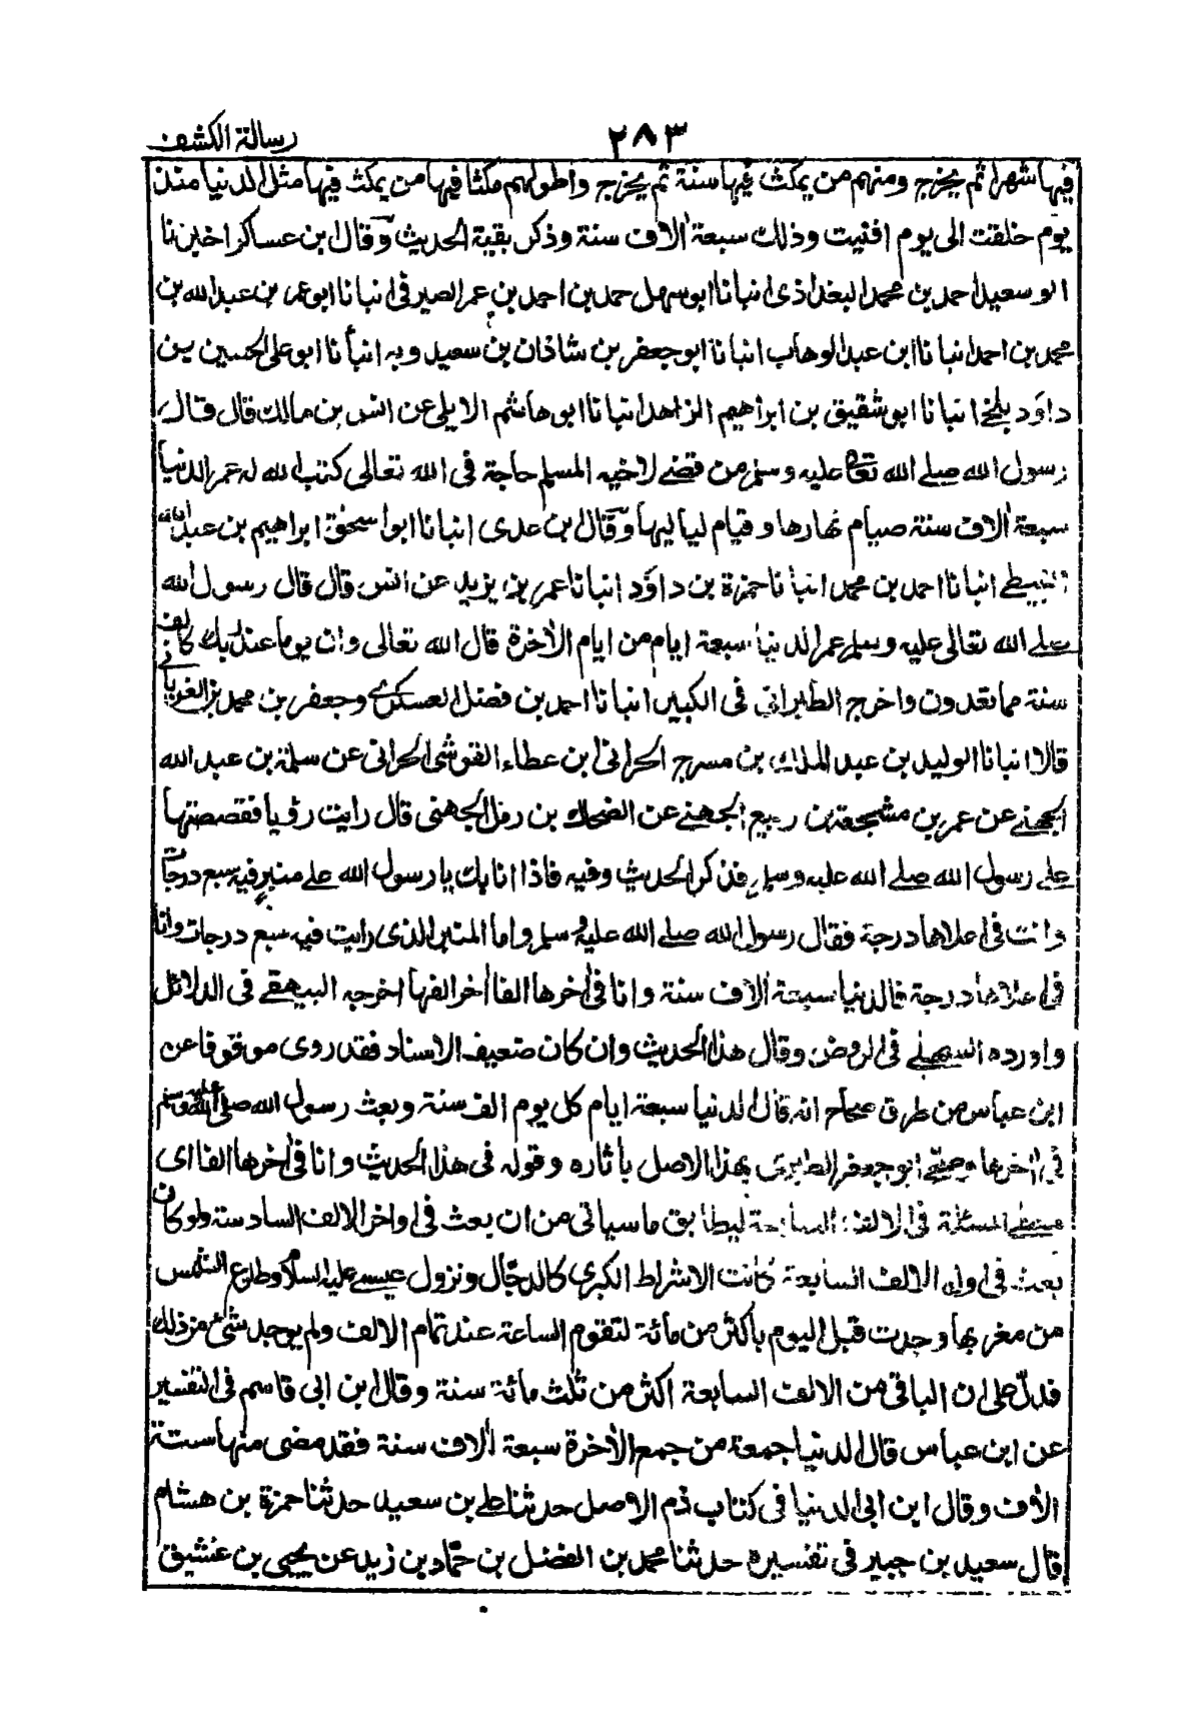 رسالة الكشف
٢٨٣
فيها شهرا ثم يخرج ومنهم من يمكث فيها سنة ثم يخرج واطولهم مكثا فيها من يمكث فيها مثل الدنيا منذ
يوم خلقت الى يوم افنيت وذلك سبعة اٰلاف سنة وذكر بقية الحديث وقال بن عساكر اخبرنا
ابو سعيد احمد بن محمد البغداذى انبانا ابو سهل حمد بن احمد بن عمر الصيرفى انبانا ابو عمر بن عبد الله بن
محمد بن احمد انبانا ابن عبد الوهاب انبانا ابو جعفر بن شاذان بن سعيد وبه انبأنا ابو على الحسين بن
داؤد بلخ انبانا ابو شقيق بن ابراهيم الزاهد انبانا ابو هاشم الايلى عن انس بن مالك قال قال
رسول الله صلے الله تعالى عليه وسلم من قضے لاخيه المسلم حاجة فى الله تعالى كتب الله له عمر الدنيا
سبعة اٰلاف سنة صيام نهارها وقيام لياليها وقال بن عدى انبانا ابو اسحٰق ابراهيم بن عبد الله
النبيطے انبانا احمد بن محمد انبانا حمزة بن داؤد انبانا عمر بن يزيد عن انس قال قال رسول الله
صلے الله تعالى عليه وسلم عمر الدنيا سبعة ايام من ايام الاٰخرة قال الله تعالى وان يوما عند ربك كالف
سنة مما تعدون واخرج الطبرانى فى الكبير انبانا احمد بن فضل العسكرے وجعفر بن محمد بن الفريابے
قالا انبانا الوليد بن عبد الملك بن مسرح الحرانى ابن عطاء القوشى الحرانى عن سلمة بن عبد الله
الجهنے عن عمر بن مشجعة بن ربيع الجهنے عن الضحاك بن رمل الجهنى قال رايت رؤيا فقصصتها
علے رسول الله صلے الله عليه وسلم فذكر الحديث وفيه فاذا انا بك يا رسول الله علے منبر فيه سبع درجات
وانت فى اعلاها درجة فقال رسول الله صلے الله عليه وسلم واما المنبر الذى رايت فيه سبع درجات وانا
فى اعلاها درجة فالدنيا سبعة اٰلاف سنة وانا فى اٰخرها الفا اٰخر الفها اخرجه البيهقے فى الدلائل
واورده السهيلے فى الروض وقال هذا الحديث وان كان ضعيف الاسناد فقد روى موقوفا عن
ابن عباس من طرق صحاح انه قال الدنيا سبعة ايام كل يوم الف سنة وبعث رسول الله صلى الله عليه وسلم
فى اٰخرها وصححے ابو جعفر الطبرى بهذا الاصل باٰثاره وقوله فى هذا الحديث وانا فى اٰخرها الفا اى
المسئلة فى الالف السابعة ليطابق ما سياتى من ان بعث فى اواخر الالف السادسة ولو كان
بعث فى اول الالف السابعة كانت الاشراط الكبرى كالدجال ونزول عيسے عليه السلام وطلوع الشمس
من مغربها وجدت قبل اليوم باكثر من مائة لتقوم الساعة عند تمام الالف ولم يوجد شئ من ذلك
فدل على ان الباقى من الالف السابعة اكثر من ثلث مائة سنة وقال ابن ابى قاسم فى التفسير
عن ابن عباس قال الدنيا جمعة من جمع الاٰخرة سبعة اٰلاف سنة فقد مضى منها ستة
الاف وقال ابن ابى الدنيا فى كتاب ذم الامل حدثنا علے بن سعيد حدثنا حمزة بن هشام
قال سعيد بن جبير فى تفسيره حدثنا محمد بن الفضل بن حماد بن زيد عن يحيى بن عتيق